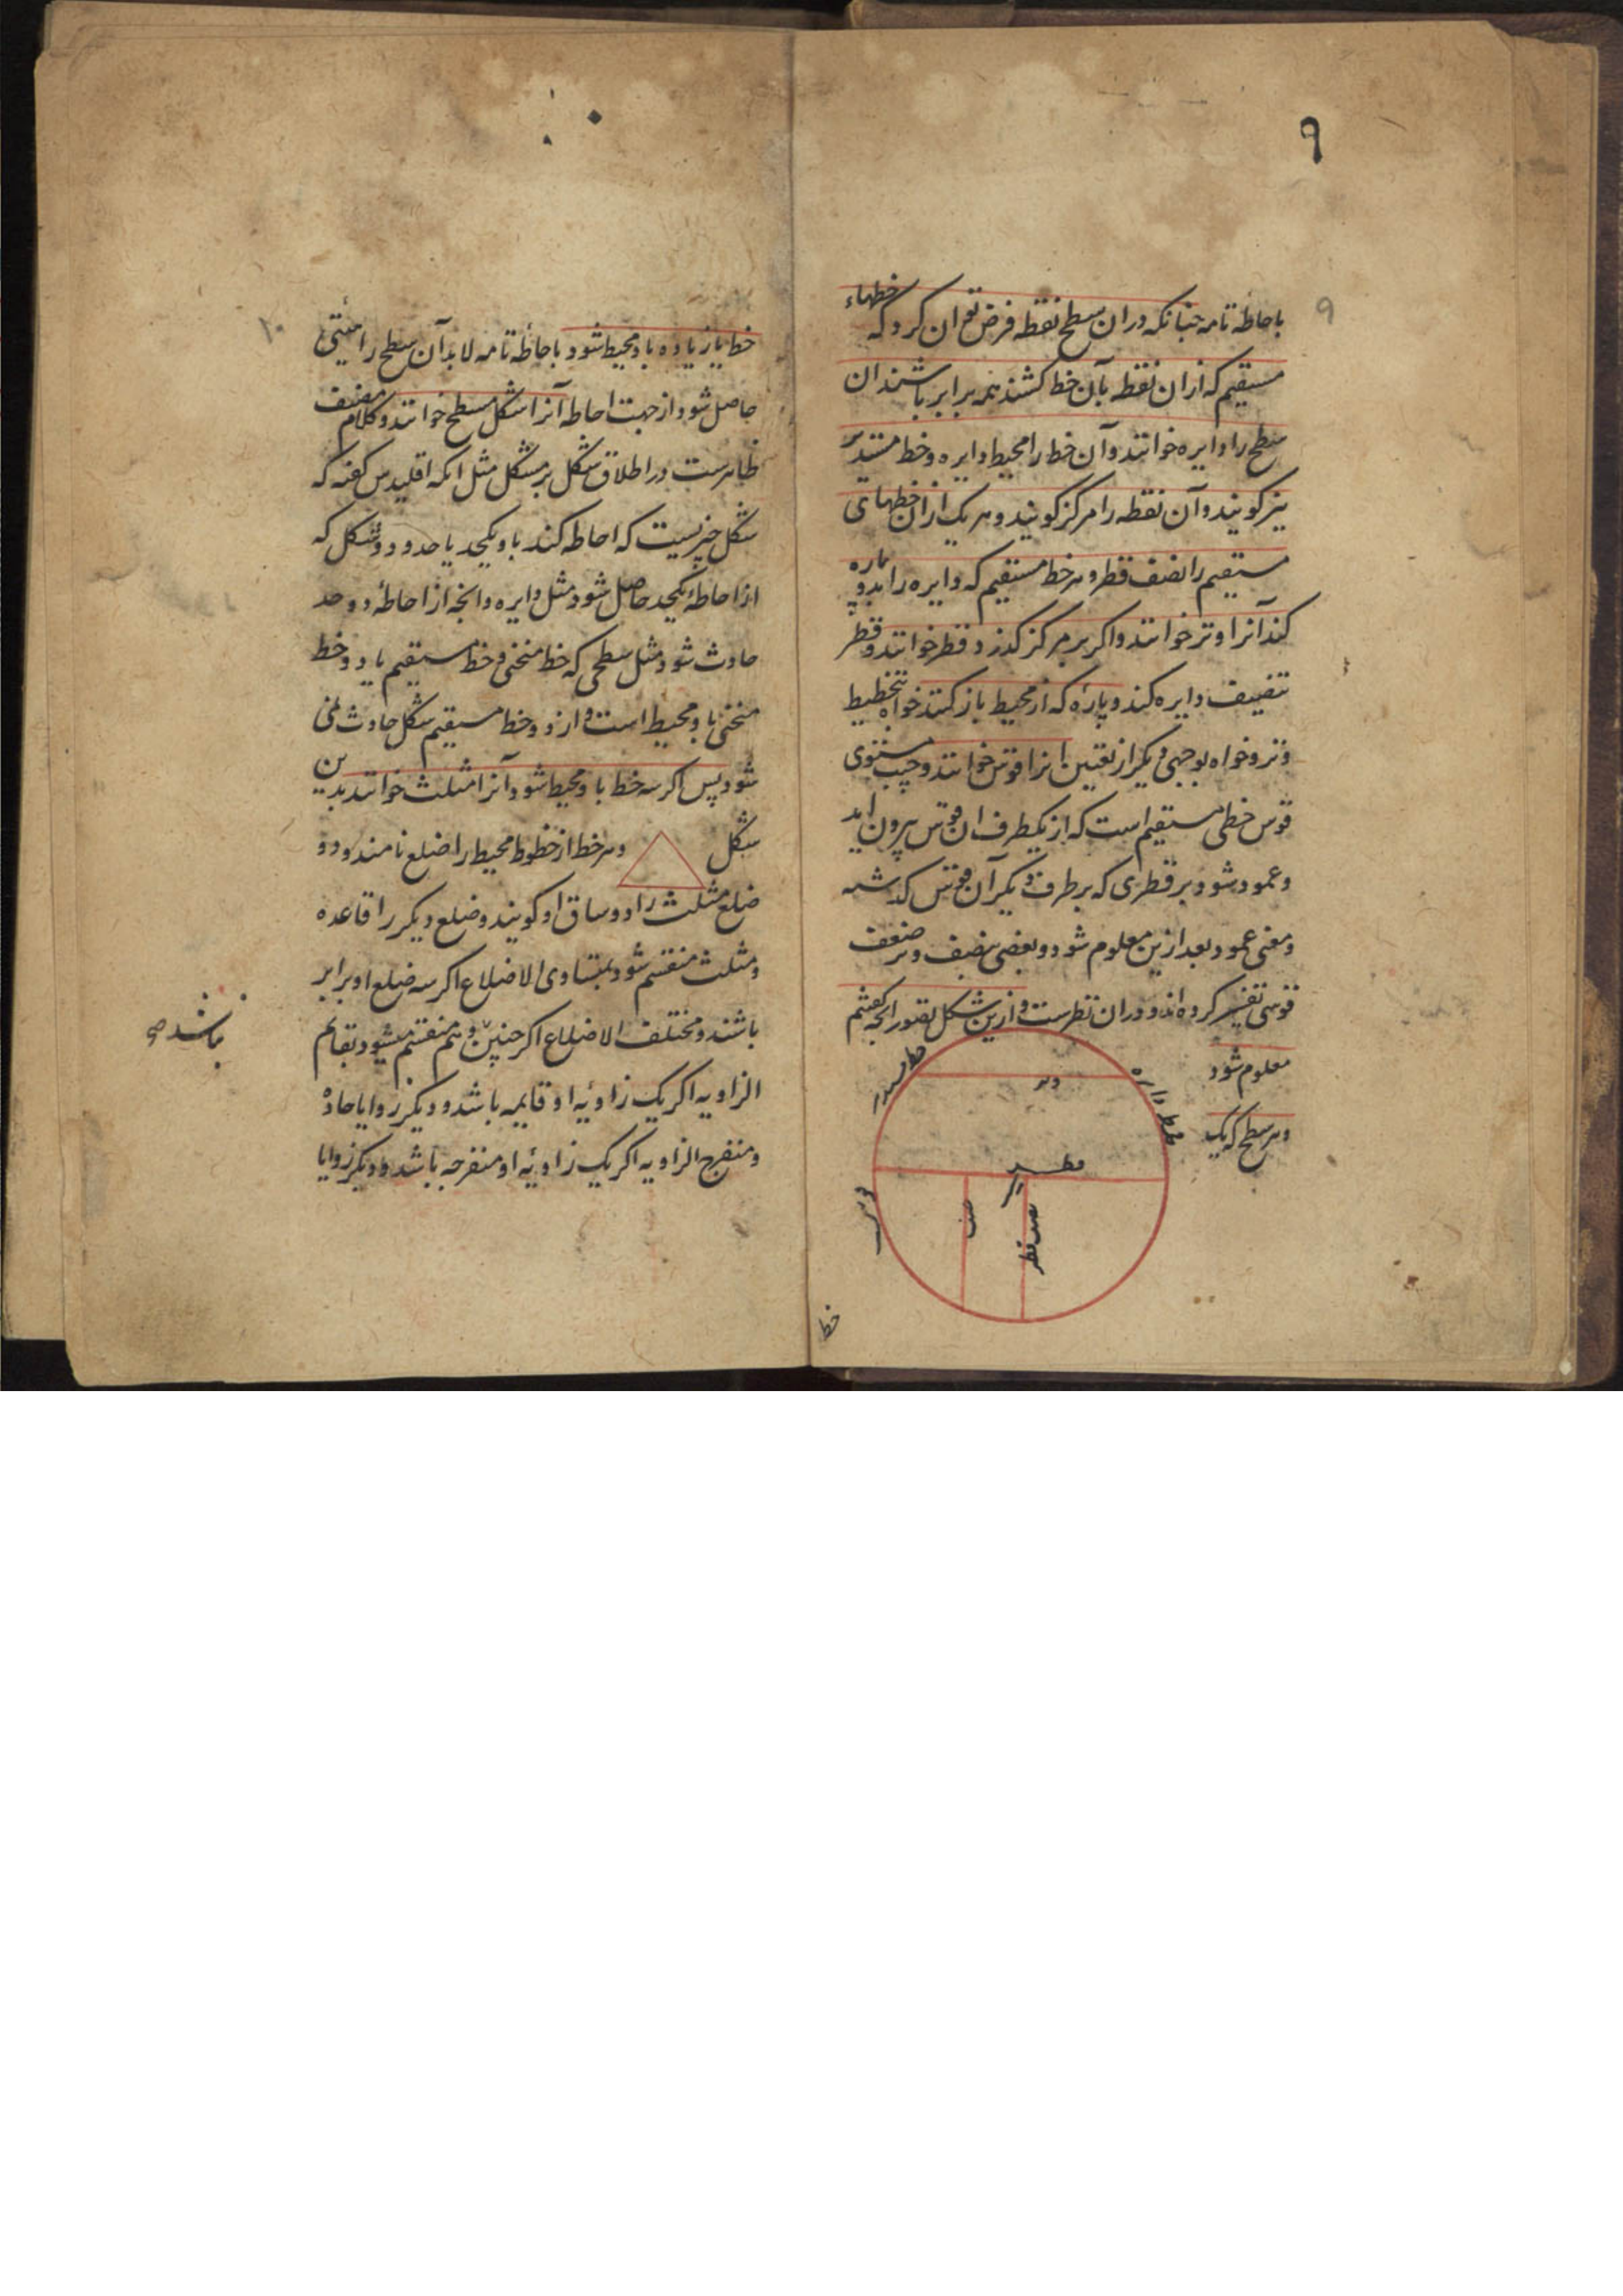 ٩
٩
باحاطه تامه چنانکه دران سطح نقطه فرض توان کرد که خطهاء
مستقیم که ازان نقطه بآن خط کشند همه برابر باشند ان
سطح را دایره خوانند و آن خط را محیط دایره و خط مستدیر
نیز گویند و آن نقطه را مرکز گویند و هر یک ازان خطهای
مستقیم را نصف قطر و هر خط مستقیم که دایره را بدو پاره
کند آنرا وتر خوانند و اگر بر مرکز گذرد قطر خوانند و قطر
تنصیف دایره کند و پاره که از محیط باز کنند خواه بتخطیط
وتر و خواه بوجهی دیگر از تعیین انرا قوس خوانند و جیب مستوی
قوس خطی مستقیم است که از یکطرف ان قوس بیرون اید
و عمود شود بر قطری که بر طرف دیگر آن قوس گذشته
و معنی عمود بعد ازین معلوم شود و بعضی بنصف وتر ضعف
قوسی تفسیر کرده اند و دران نظرست و ازین شکل تصور انچه گفتیم
معلوم شود
و هر سطح که یک
وتر
محیط دایره
قطر
مرکز
نصف قطر
جیب
قوس
خط
١٠
خط یا زیاده باو محیط شود باحاطه تامه لابد آن سطح را هیئتی
حاصل شود از جهت احاطه آنرا شکل مسطح خوانند و کلام مصنف
ظاهرست در اطلاق شکل بر مشکل مثل انکه اقلیدس گفته که
شکل چیزیست که احاطه کند باو یکحد یا حدود و شکل که
از احاطهٔ یکحد حاصل شود مثل دایره و انچه از احاطهٔ دو حد
حادث شود مثل سطحی که خط منحنی و خط مستقیم یا دو خط
منحنی باو محیط است و از دو خط مستقیم شکل حادث نمی
شود پس اگر سه خط باو محیط شود آنرا مثلث خوانند بدین
شکل و هر خط از خطوط محیط را ضلع نامند و دو
ضلع مثلث را دو ساق او گویند و ضلع دیگر را قاعده
و مثلث منقسم شود بمتساوی الاضلاع اگر سه ضلع او برابر
باشند و مختلف الاضلاع اگر چنین و هم منقسم میشود بقایم
الزاویه اگر یک زاویهٔ او قایمه باشد و دیگر زوایا حاده
و منفرج الزاویه اگر یک زاویهٔ او منفرجه باشد و دیگر زوایا
نباشد صح